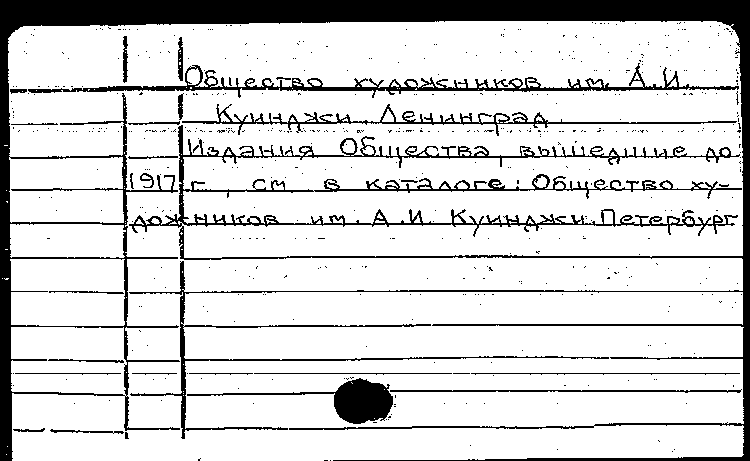 Общество художников им. А.И.
Куинджи. Ленинград
Издания Общества, вышедшие до
1917 г., см. в каталоге: Общество ху-
дожников им. А.И. Куинджи. Петербург